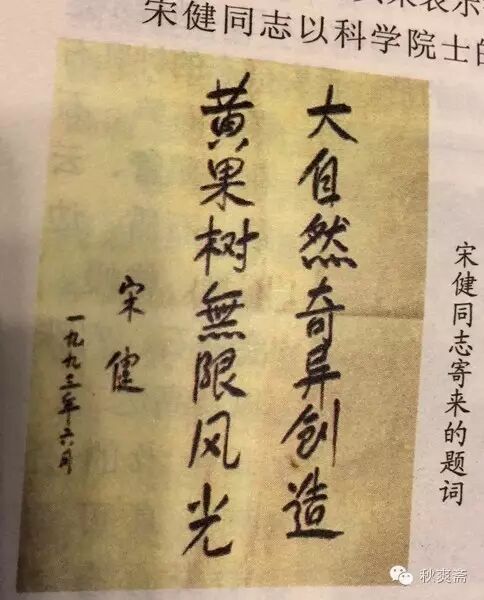 宋健同志以科学院士的
大自然奇异创造
黄果树無限风光
宋健
一九九三年六月
宋健同志寄来的题词
秋爽斋